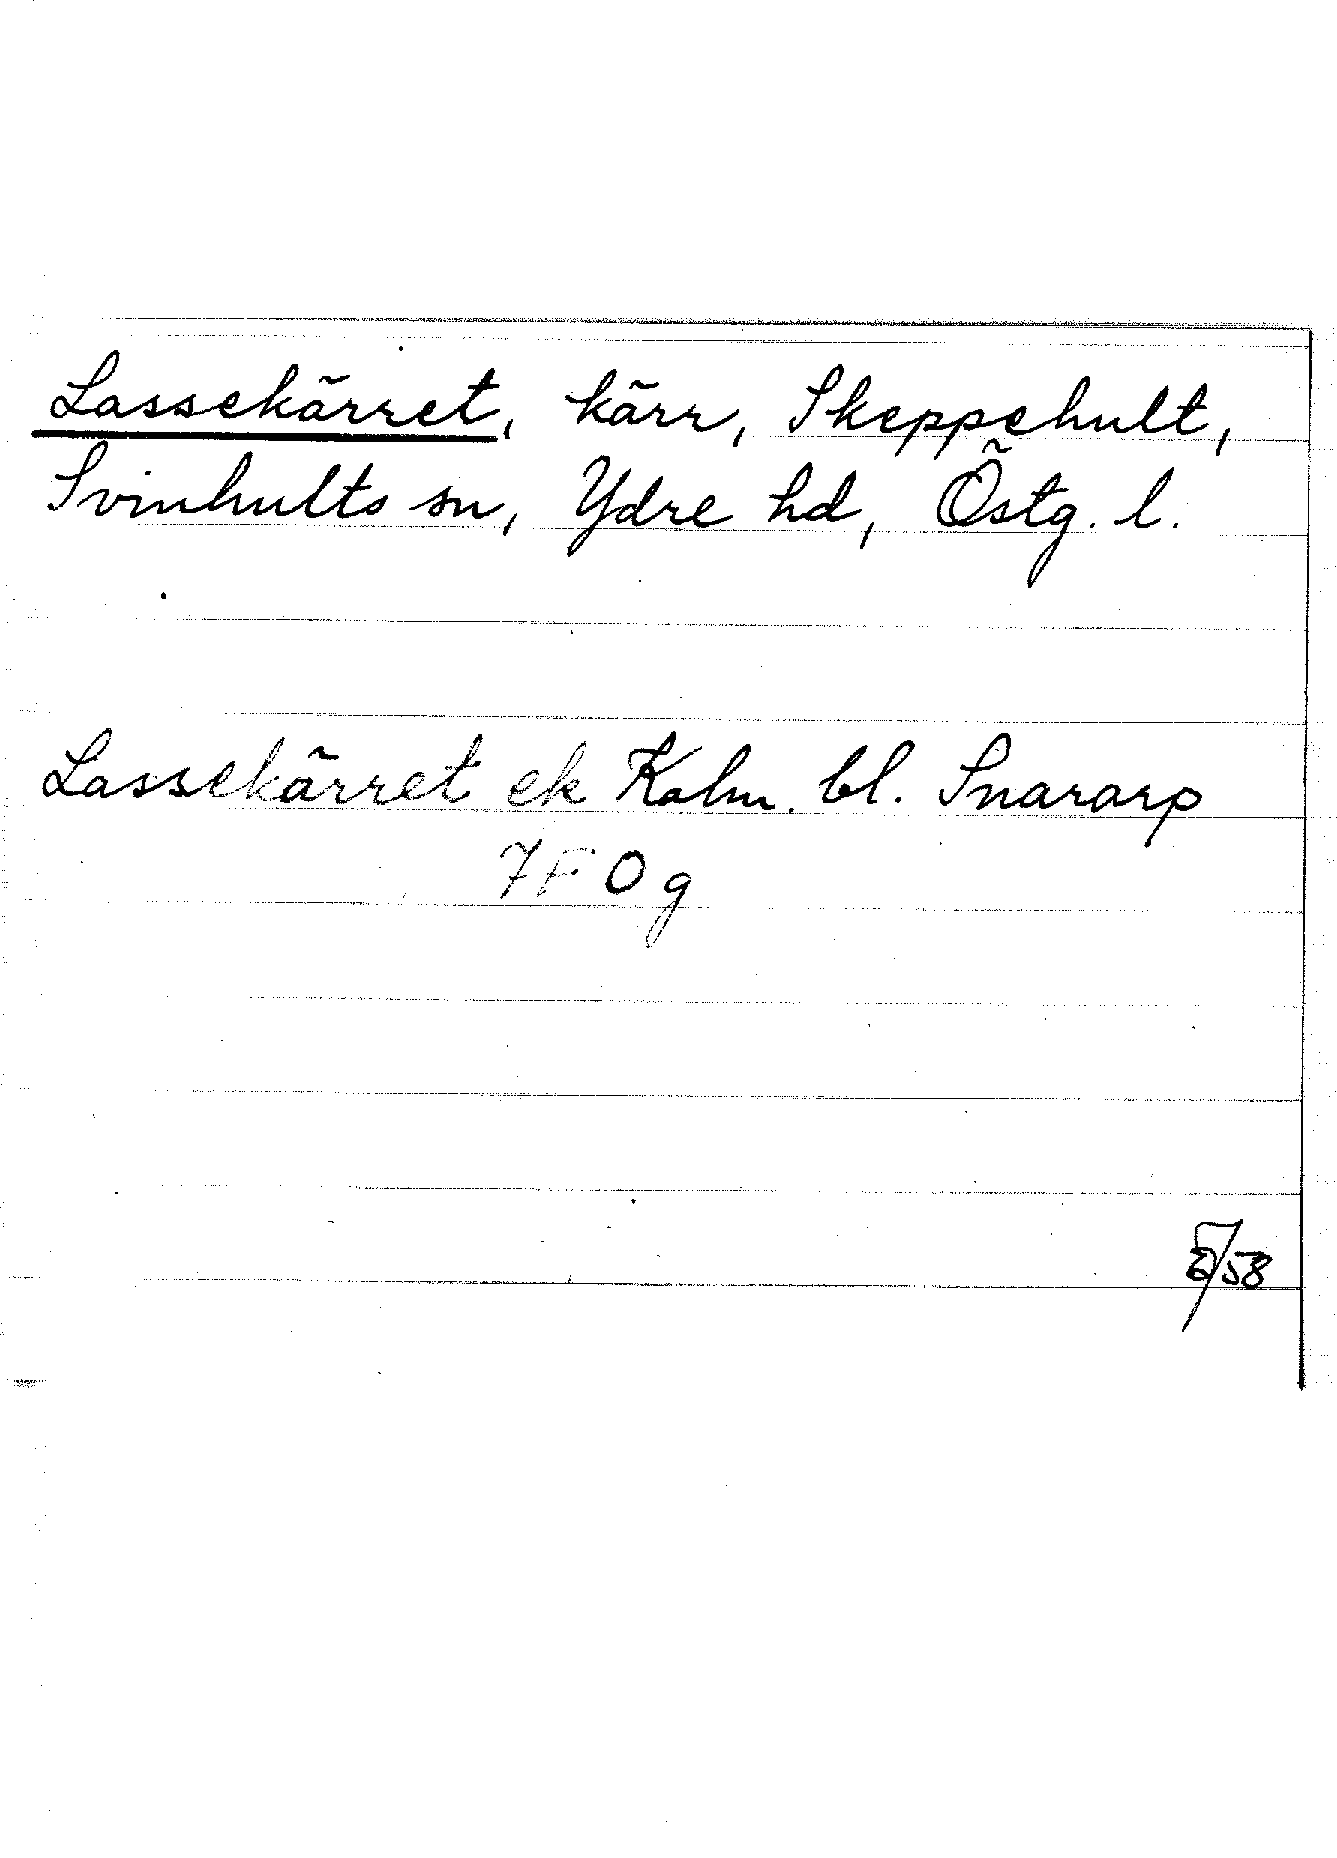 Lassekärret, kärr, Skeppehult,
Svinhults sn, Ydre hd, Östg. l.
Lassekärret ek Kalm. bl. Snararp
7F 0g
/58